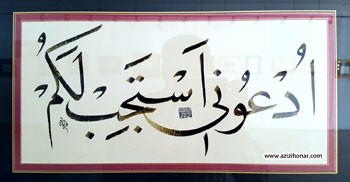 اُدْعُونِي اَسْتَجِبْ لَكُمْ
www.azizihonar.com